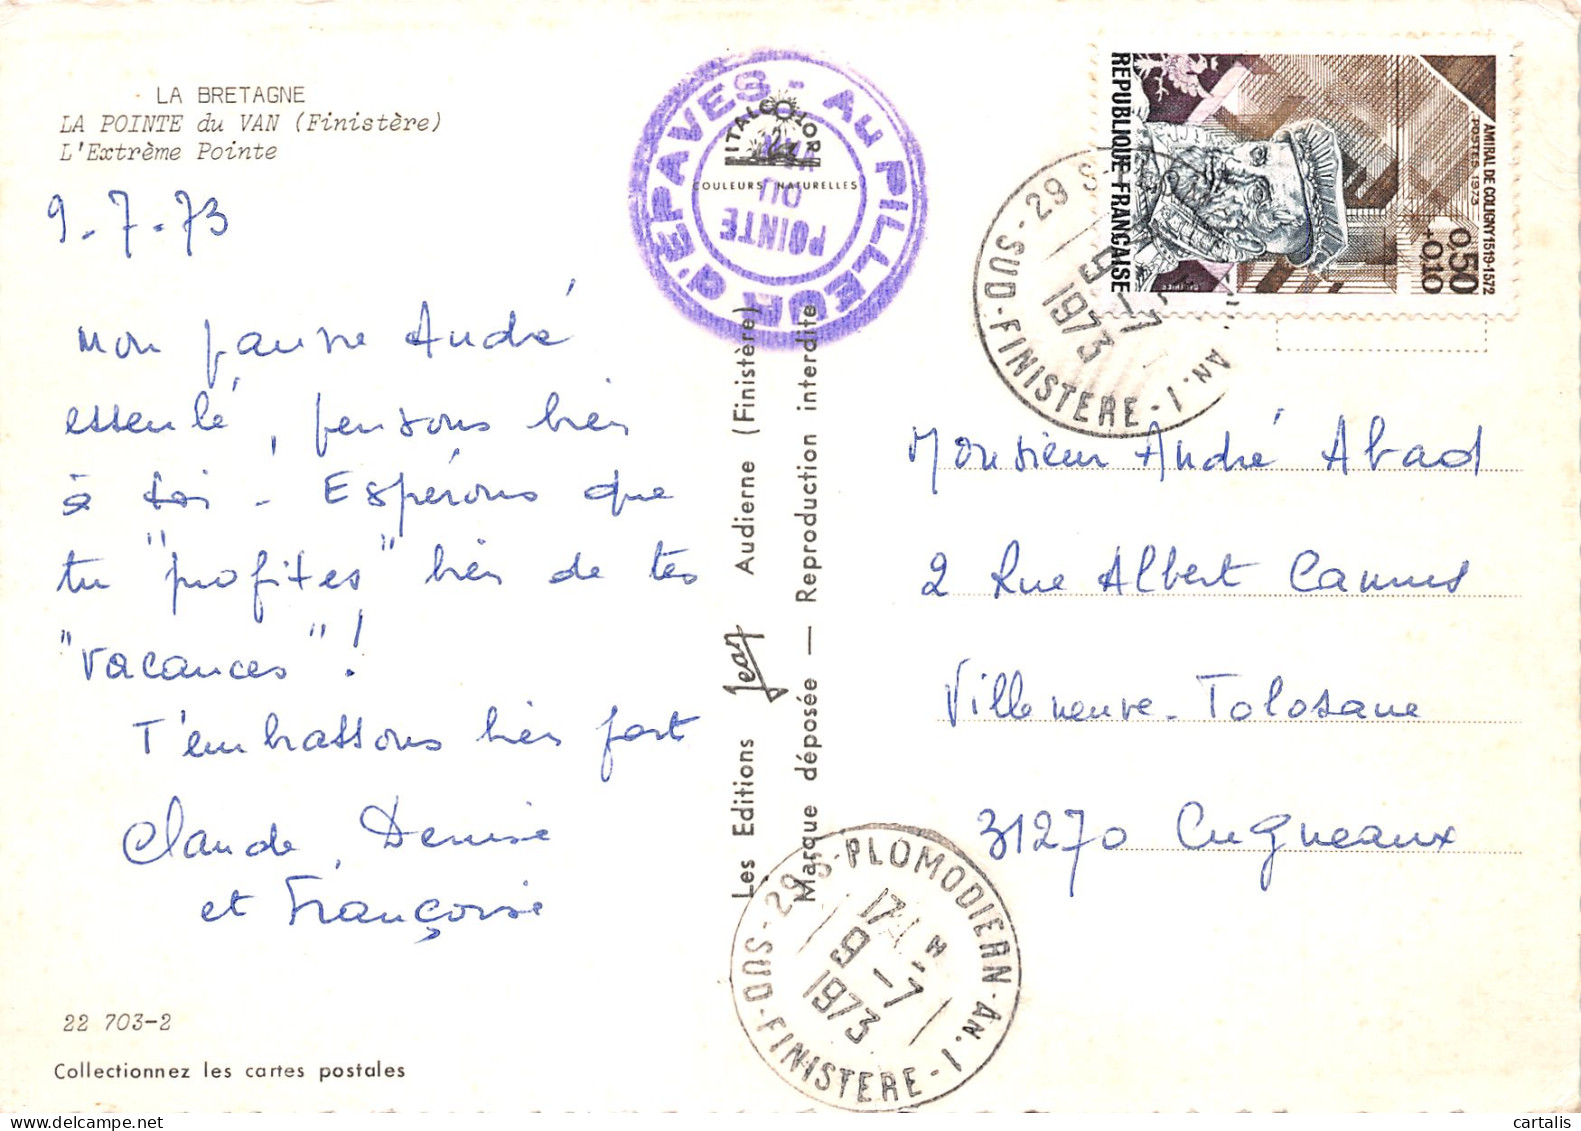 LA BRETAGNE
LA POINTE du VAN (Finistère)
L'Extrême Pointe
9-7-73
Mon pauvre André
esseulé, pensons bien
à toi - Espérons que
tu "profites" bien de tes
"vacances"!
T'embrassons bien fort
Claude, Denise
et Françoise
22 703-2
Collectionnez les cartes postales
AU PILLEUR D'EPAVES -
POINTE
DU
VAN
ITALCOLOR
COULEURS NATURELLES
Les Editions Jean Audierne (Finistère)
Marque déposée — Reproduction interdite
REPUBLIQUE FRANÇAISE
AMIRAL DE COLIGNY 1519-1572
POSTES 1973
0,50
+0,10
SUD-FINISTERE - AN.1
29 S
9-7
1973
Monsieur André Abad
2 Rue Albert Camus
Villeneuve-Tolosane
31270 Cugneaux
29 S-PLOMODIERN-AN.1
SUD-FINISTERE
17 H
9-7
1973
cartalis
delcampe.net